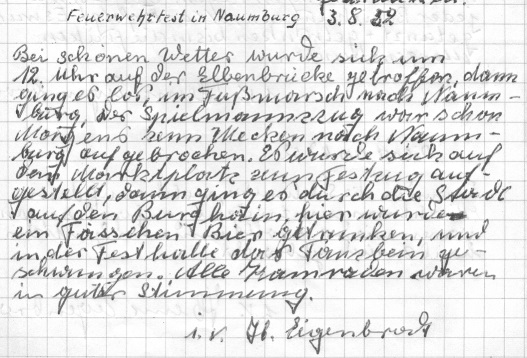 Feuerwehrfest in Naumburg 3.8.32
Bei schönen Wetter wurde sich um
12. Uhr auf der Elbenbrücke getroffen, dann
ging es los, im Fußmarsch nach Naum-
burg, der Spielmannszug war schon
Morgens zum Wecken nach Naum-
burg aufgebrochen. Es wurde sich auf
dem Marktplatz zum Festzug auf-
gestellt, dann ging es durch die Stadt
auf den Burghain, hier wurde
ein Fässchen Bier getrunken, und
in der Festhalle das Tanzbein ge-
schwungen. Alle Kamraden waren
in guter Stimmung.
i.v. H. Eigenbrodt